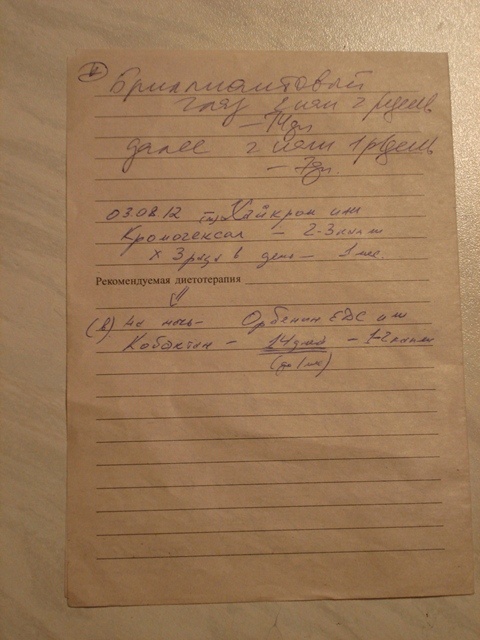 Бриллиантовый
глаз 2 кап 2 р/день
— 14 дн
далее 2 кап 1 р/день
— 7дн.
03.08.12 Хайкром или
Кромогексал – 2-3 капли
х 3 раза в день – 1 мес.
Рекомендуемая диетотерапия
на ночь – Орбенин EDC или
Кобактан – 14 дней – 1-2 капли